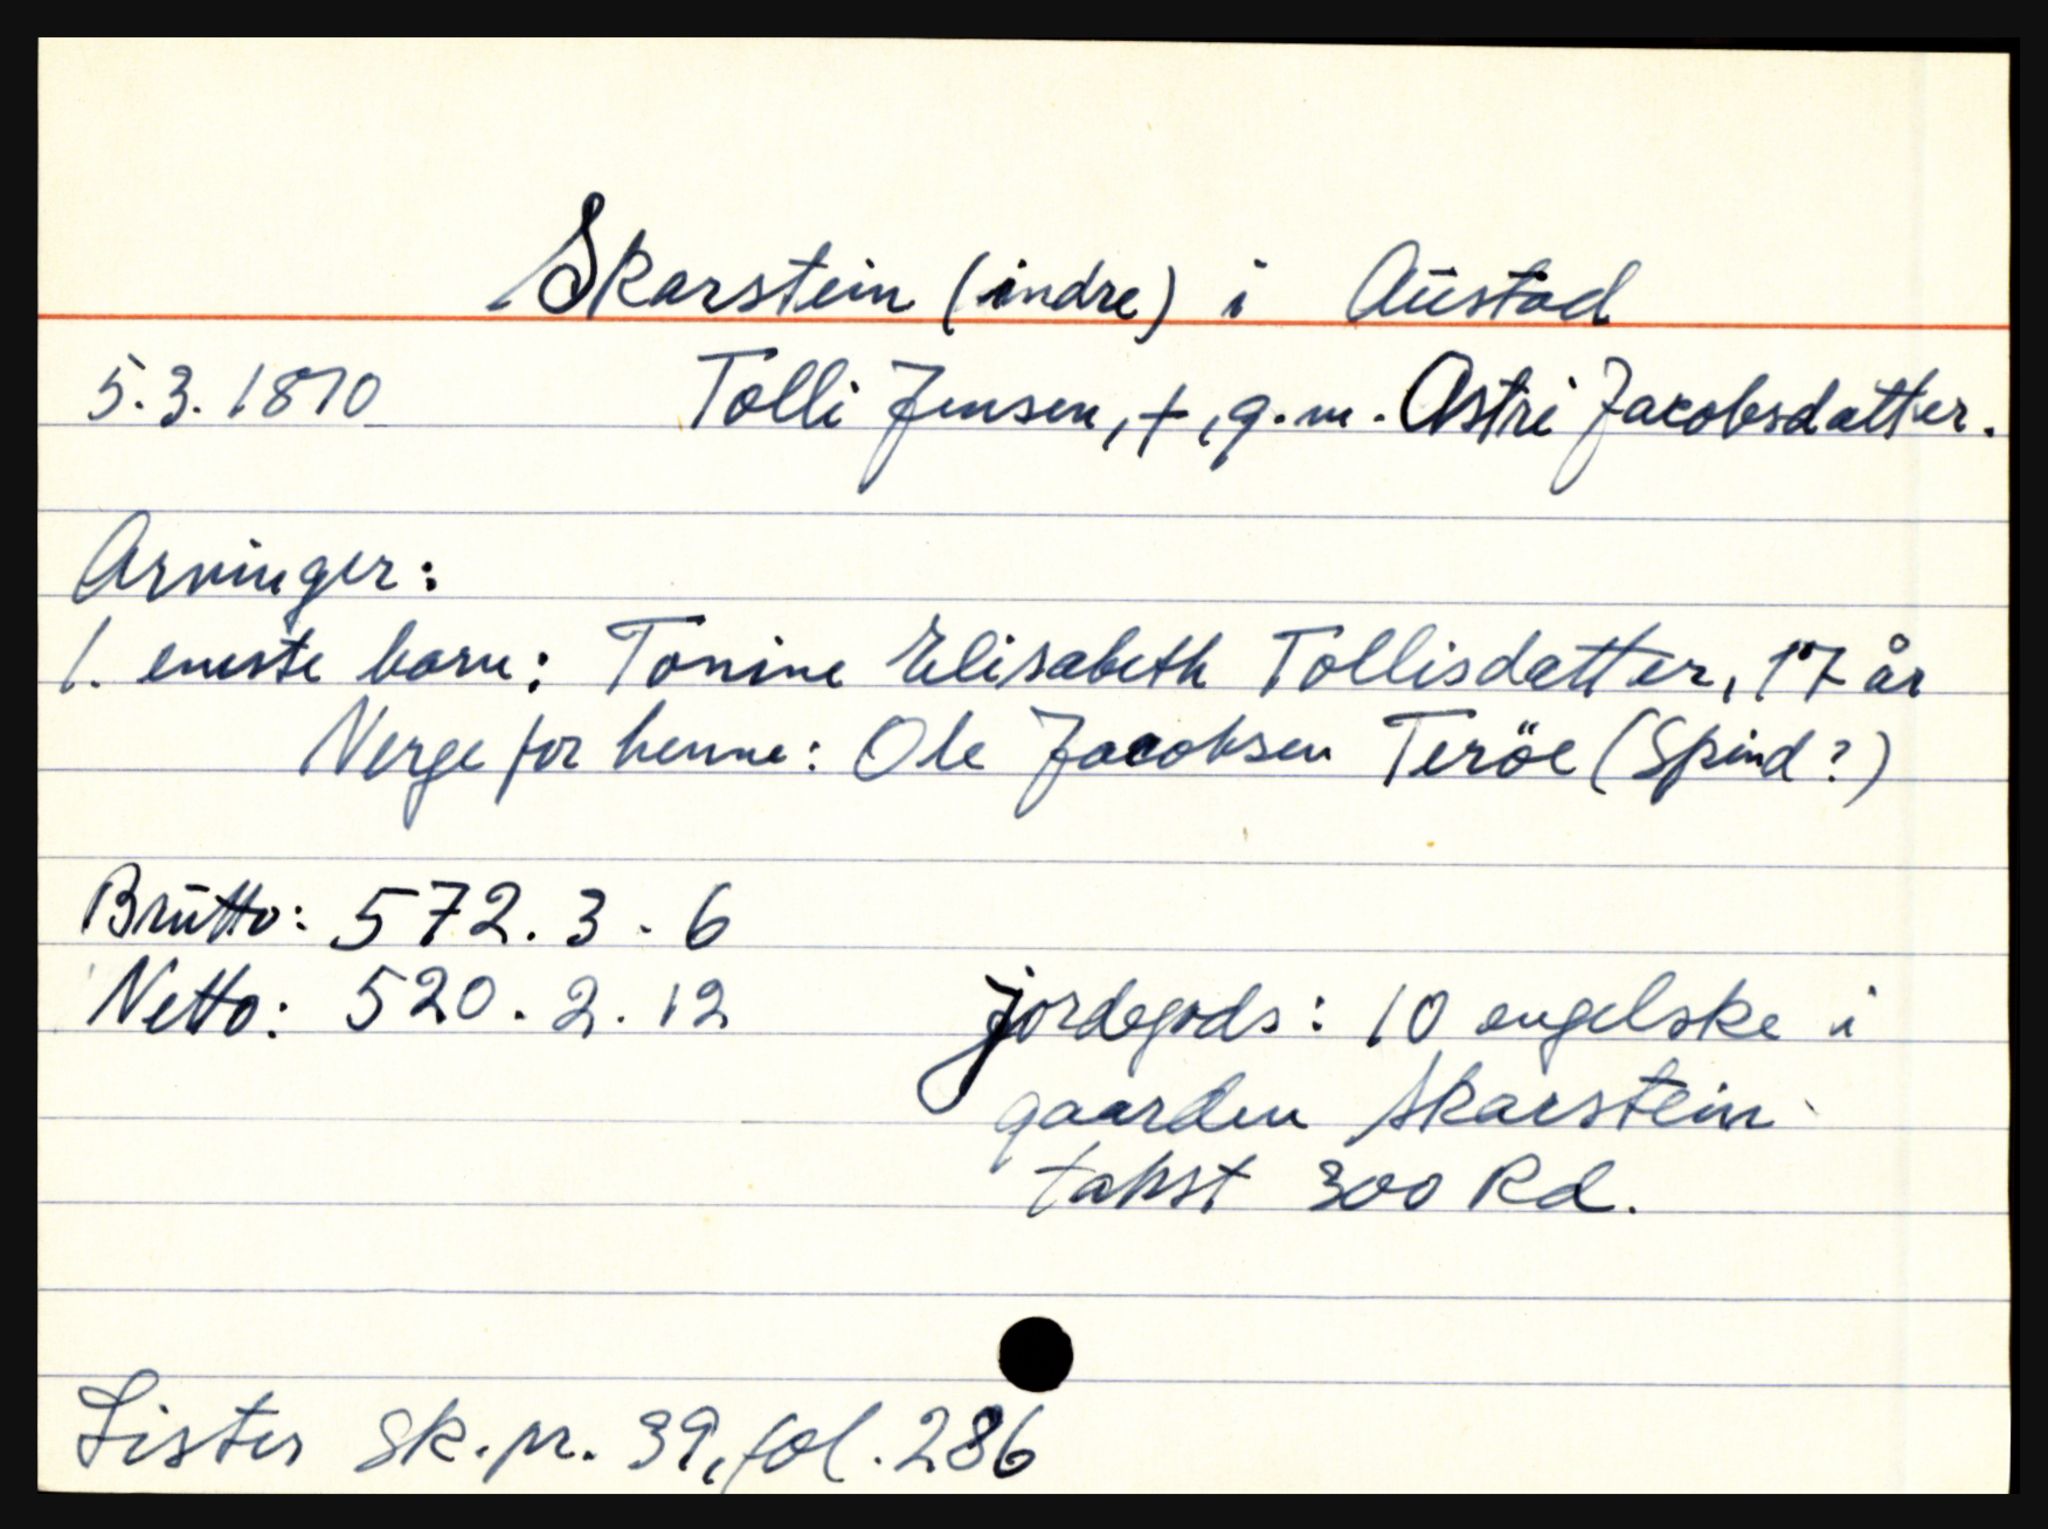 Skarstein (indre) i Austad
5.3.1810 Tolli Jensen, +, g.m. Astri Jacobsdatter.
Arvinger:
1. eneste barn: Tonine Elisabeth Tollisdatter, 17 år
Verge for henne: Ole Jacobsen Teröe (Spind?)
Brutto: 572.3.6
Netto: 520.2.12 jordegods: 10 engelske i
gaarden Skarstein
takst 300 Rd.
Lister sk.pr. 39, fol. 286